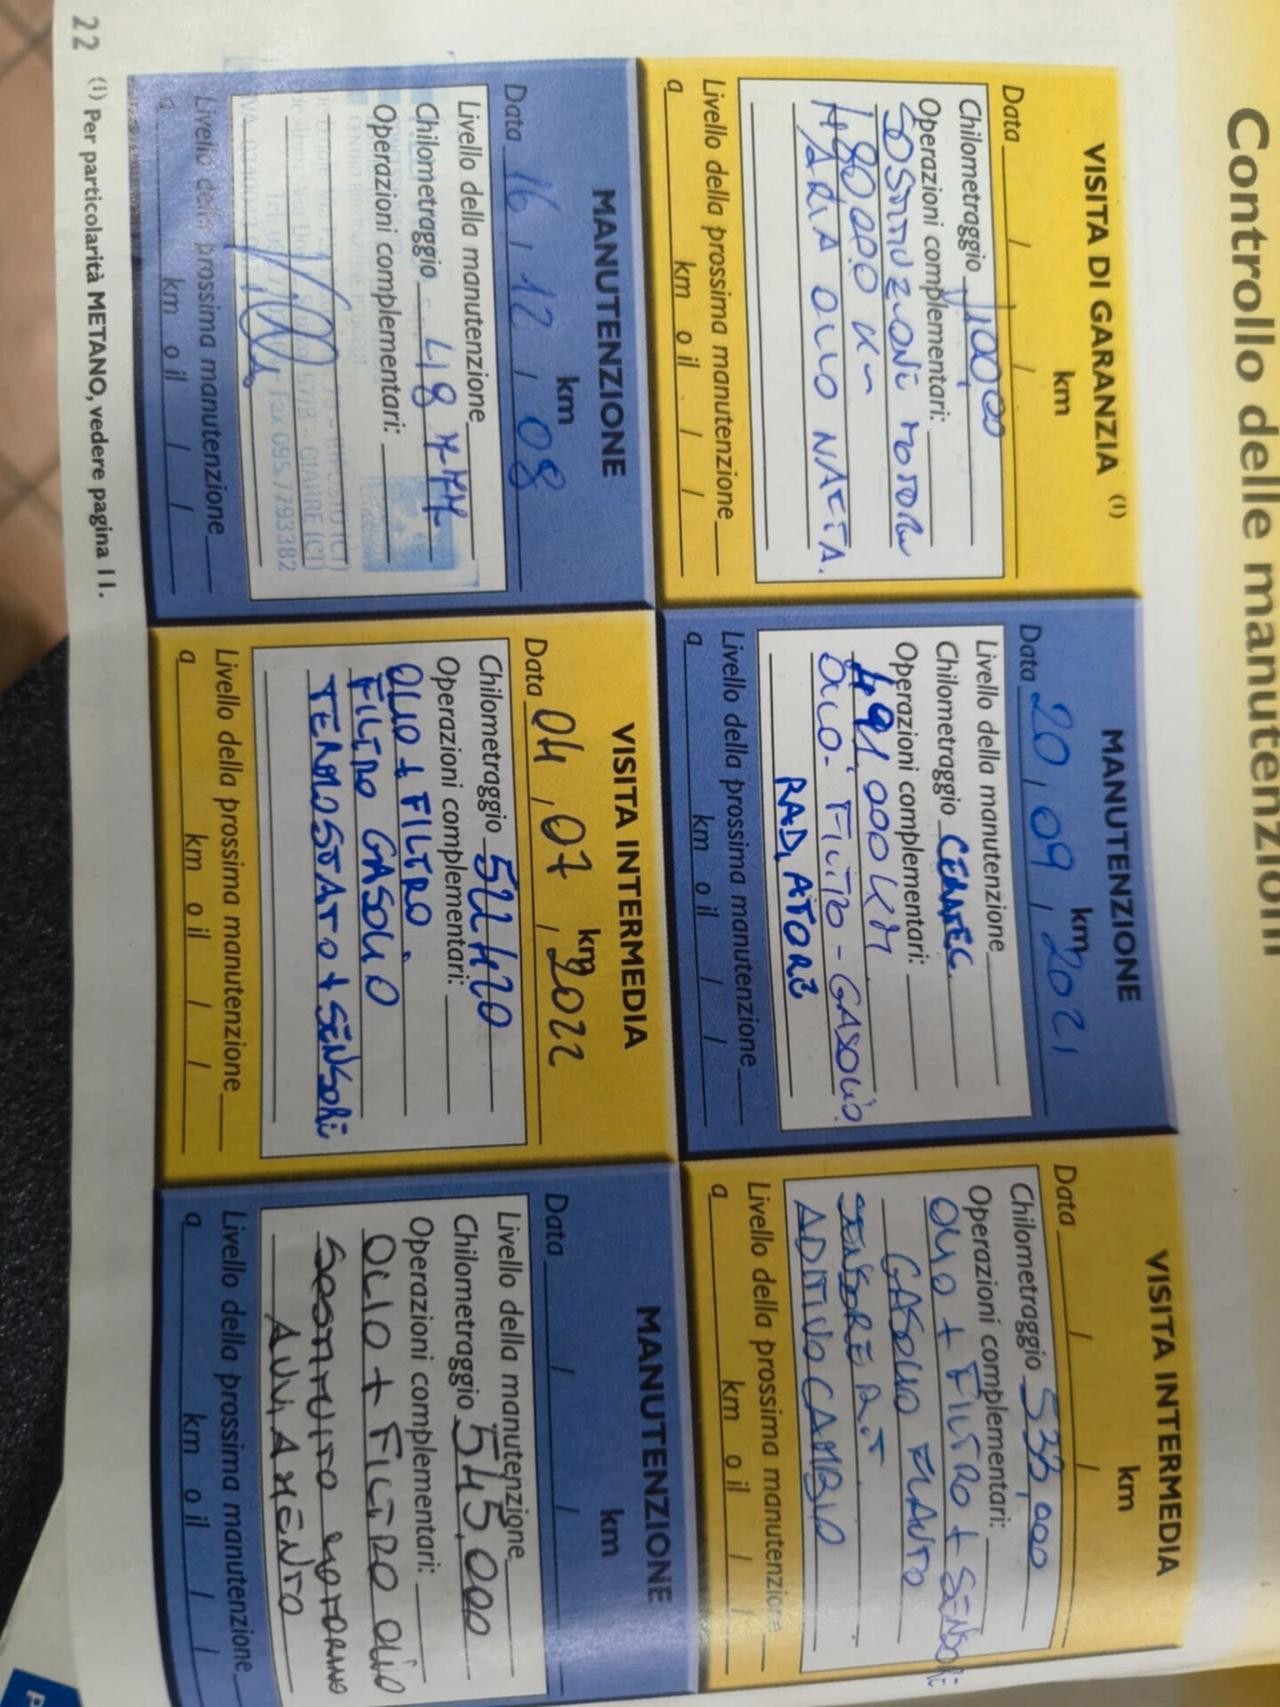 Controllo delle manutenzioni
VISITA DI GARANZIA (1)
km
Data / /
Chilometraggio
Operazioni complementari:
180,000 Km
ARIA OLIO NAFTA.
Livello della prossima manutenzione
a km o il / /
MANUTENZIONE
km
Data 20, 09, 2021
Livello della manutenzione
Chilometraggio
Operazioni complementari:
491.000 KM
OLIO - FILTRO - GASOLIO.
RADIATORE
Livello della prossima manutenzione
a km o il / /
VISITA INTERMEDIA
km
Data / /
Chilometraggio 533,000
Operazioni complementari:
OLIO + FILTRO + SENSORI
GASOLIO
SENSORE
ADITIVO CAMBIO
Livello della prossima manutenzione
a km o il / /
MANUTENZIONE
km
Data 16, 12, 08
Livello della manutenzione
Chilometraggio
Operazioni complementari:
GIARRE (CT)
Fax 095.7793382
Livello della prossima manutenzione
a km o il / /
VISITA INTERMEDIA
km
Data 04, 07, 2022
Chilometraggio 522420
Operazioni complementari:
OLIO + FILTRO.
FILTRO GASOLIO
TERMOSTATO + SENSORI
Livello della prossima manutenzione
a km o il / /
MANUTENZIONE
km
Data / /
Livello della manutenzione
Chilometraggio 545,000
Operazioni complementari:
OLIO + FILTRO OLIO
SOSTITUITO MOTORINO
AVVIAMENTO
Livello della prossima manutenzione
a km o il / /
22 (1) Per particolarità METANO, vedere pagina 11.